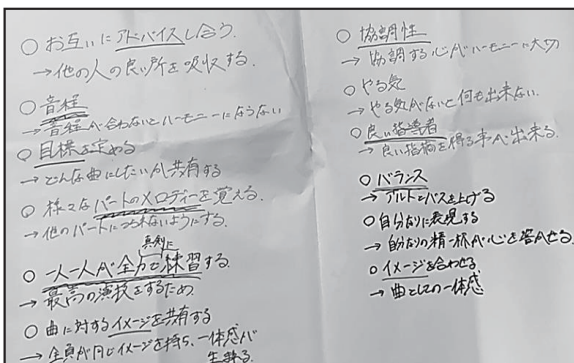 ○ お互いにアドバイスし合う.
→他の人の良い所を吸収する.
○ 音程
→音程が合わないとハーモニーにならない
○ 目標を定める
→どんな曲にしたいか共有する
○ 様々なパートのメロディーを覚える.
→他のパートにつられないようにする.
真剣に
○ 一人一人が全力で練習する.
→ 最高の演技をするため
○ 曲に対するイメージを共有する
→ 全員が同じイメージを持ち、一体感が
生まれる.
○ 協調性
→ 協調する心がハーモニーに大切
○ やる気
→ やる気がないと何も出来ない.
○ 良い指導者
→ 良い指摘を得る事が出来る.
○ バランス
→ アルトとバスを上げる
○ 自分なりに表現する
→ 自分なりの精一杯が心を響かせる.
○ イメージを合わせる
→ 曲としての一体感